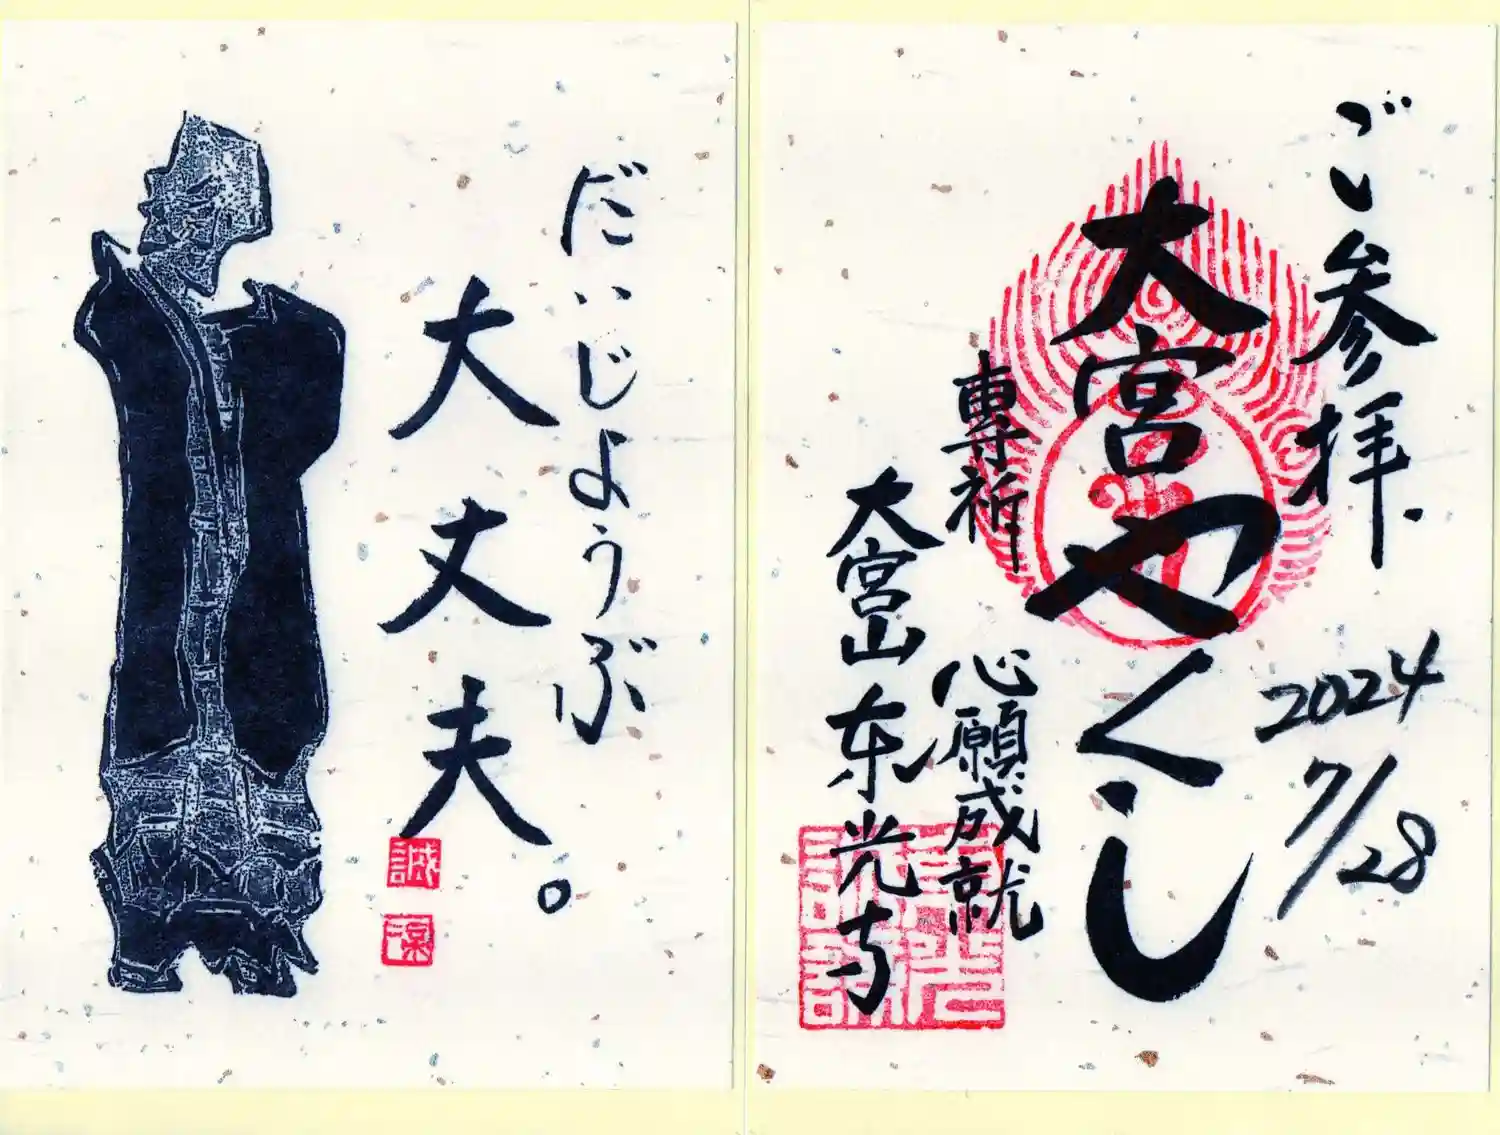 ご参拝.
2024
7/28
大宮やくし
専祈
心願成就
大宮山東光寺
だいじょうぶ
大丈夫。
誠